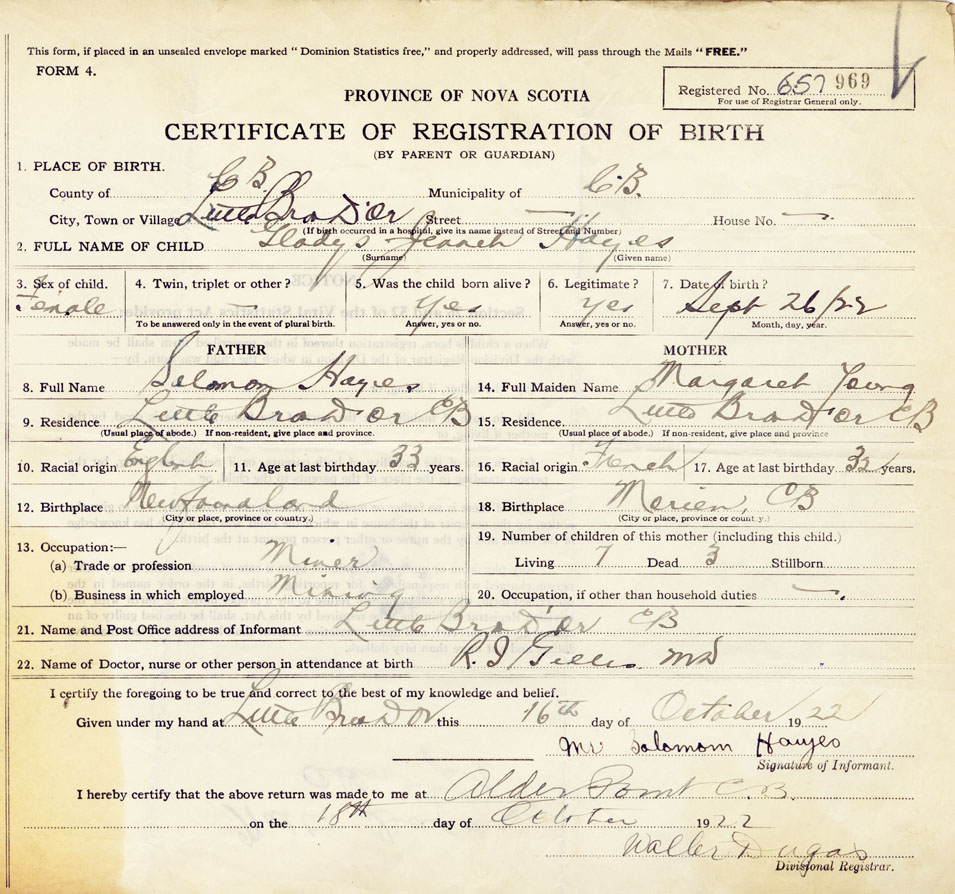 This form, if placed in an unsealed envelope marked "Dominion Statistics free," and properly addressed, will pass through the Mails "FREE."
FORM 4.
Registered No. 657 969
For use of Registrar General only.
PROVINCE OF NOVA SCOTIA
CERTIFICATE OF REGISTRATION OF BIRTH
(BY PARENT OR GUARDIAN)
1. PLACE OF BIRTH.
County of C B. Municipality of C.B.
City, Town or Village Little Bras D'Or Street — House No. —
(If birth occurred in a hospital, give its name instead of Street and Number)
2. FULL NAME OF CHILD Gladys Hayes
(Surname) (Given name)
3. Sex of child. 4. Twin, triplet or other? 5. Was the child born alive? 6. Legitimate? 7. Date of birth?
Female — Yes Yes Sept 26/22
To be answered only in the event of plural birth. Answer, yes or no. Answer, yes or no. Month, day, year.
FATHER MOTHER
8. Full Name Solomon Hayes 14. Full Maiden Name Margaret Young
9. Residence Little Bras D'or CB 15. Residence. Little Bras D'or CB
(Usual place of abode.) If non-resident, give place and province. (Usual place of abode.) If non-resident, give place and province
10. Racial origin English 11. Age at last birthday 33 years. 16. Racial origin French 17. Age at last birthday 32 years.
12. Birthplace Newfoundland 18. Birthplace CB
(City or place, province or country.) (City or place, province or country.)
13. Occupation:— 19. Number of children of this mother (including this child.)
(a) Trade or profession Miner Living 7 Dead 3 Stillborn
(b) Business in which employed Mining 20. Occupation, if other than household duties —.
21. Name and Post Office address of Informant Little Bras D'or CB
22. Name of Doctor, nurse or other person in attendance at birth R. J Gillis. MD
I certify the foregoing to be true and correct to the best of my knowledge and belief.
Given under my hand at Little Bras D'Or this 16th day of October 1922
Mr Solomom Hayes
Signature of Informant.
I hereby certify that the above return was made to me at Alder Point C.B.
on the 18th day of October 1922
Walter Dugas
Divisional Registrar.